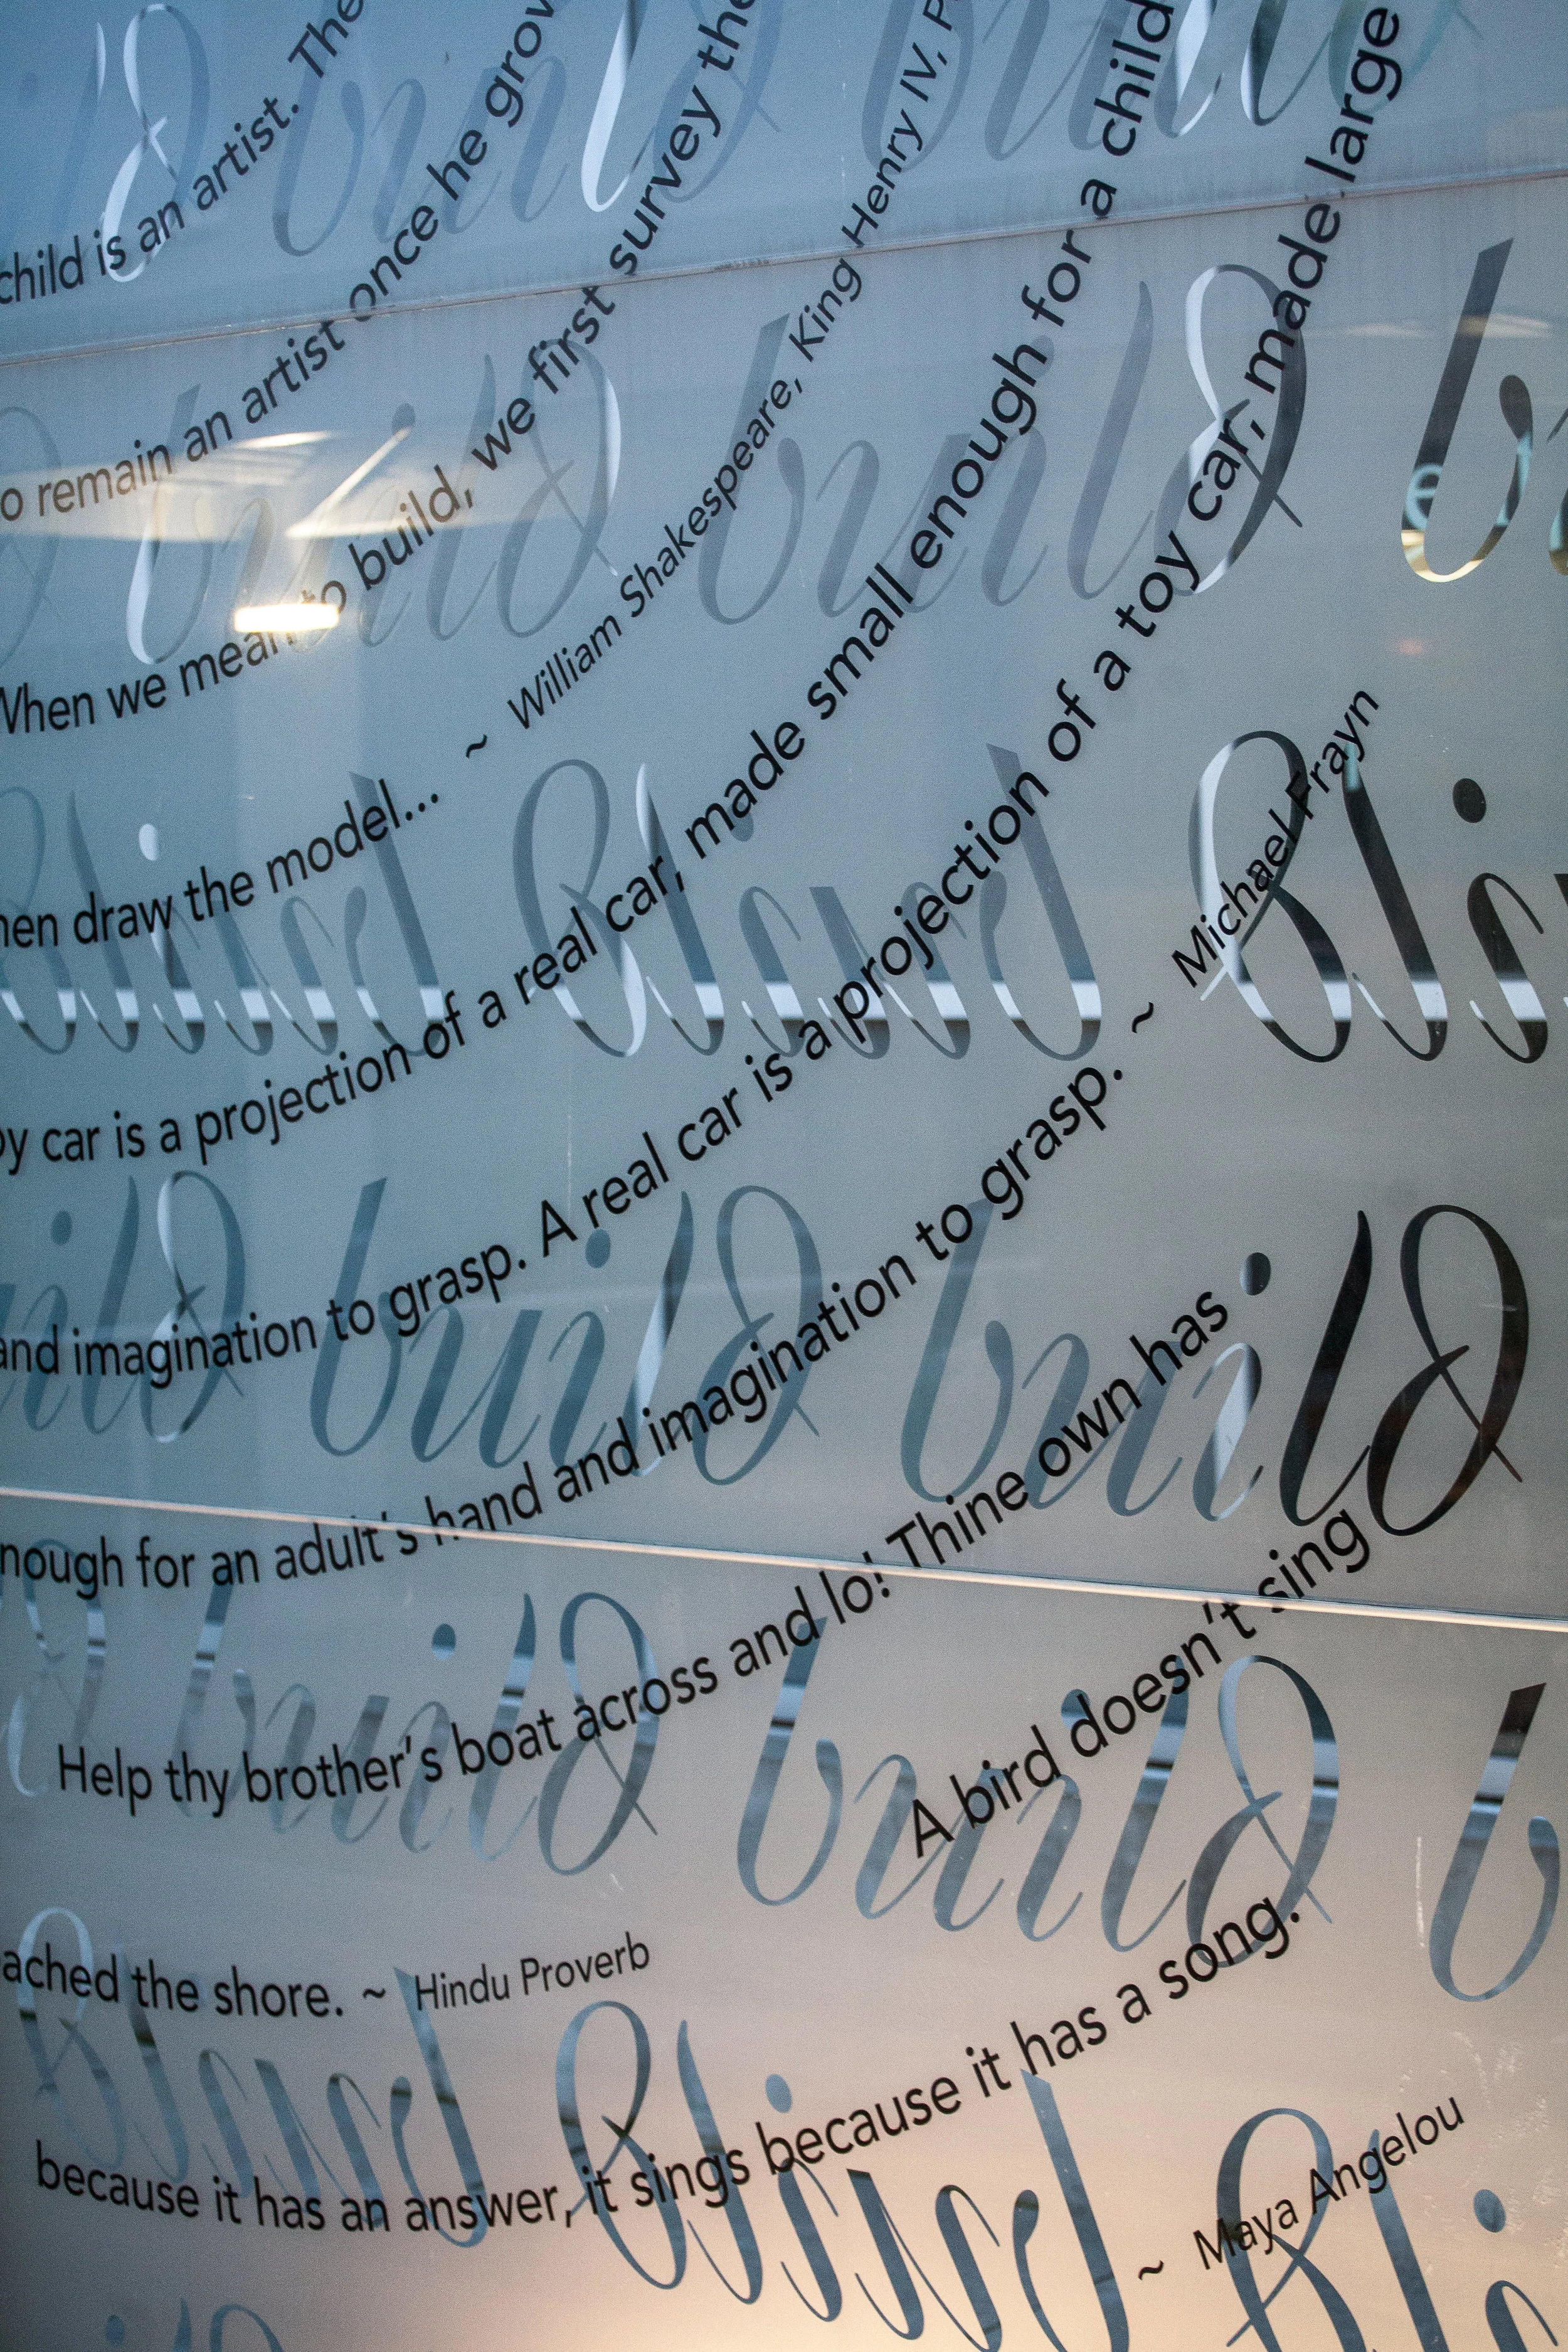 child is an artist. The
remain an artist once he
When we mean to build, we first survey the
draw the model... ~ William Shakespeare, King Henry IV,
car is a projection of a real car, made small enough for a child
and imagination to grasp. A real car is a projection of a toy car, made large
for an adult's hand and imagination to grasp. ~ Michael Frayn
Help thy brother's boat across and lo! Thine own has
the shore. ~ Hindu Proverb
A bird doesn't sing
because it has an answer, it sings because it has a song.
~ Maya Angelou
build build build
build build build b
build build build
build b